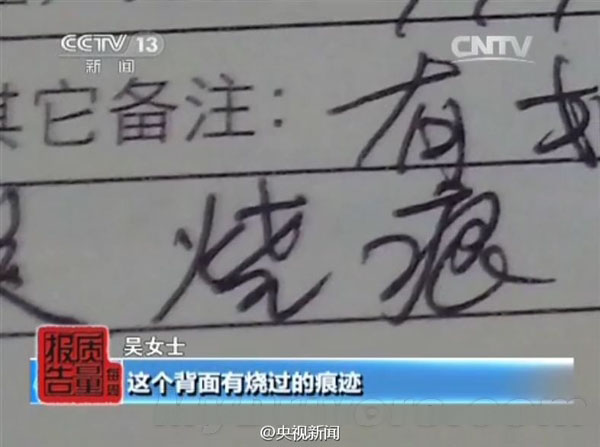 CCTV 13
新闻
CNTV
其它备注: 有
烧痕
质量
报告
每周
吴女士
这个背面有烧过的痕迹
@央视新闻